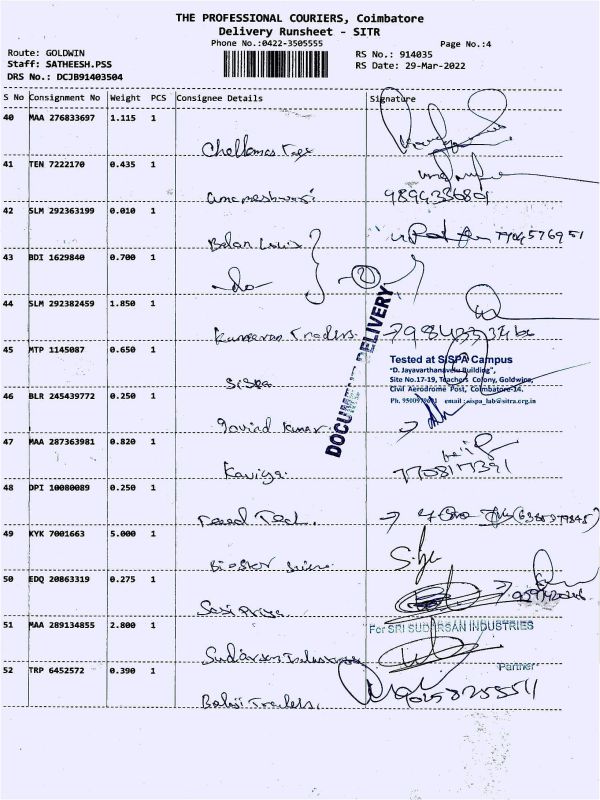 THE PROFESSIONAL COURIERS, Coimbatore
Delivery Runsheet - SITR
Phone No.:0422-3505555
Page No.:4
Route: GOLDWIN
Staff: SATHEESH.PSS
DRS No.: DCJB91403504
RS No.: 914035
RS Date: 29-Mar-2022
S No Consignment No Weight PCS Consignee Details Signature
40 MAA 276833697 1.115 1
Chellamas Tex
41 TEN 7222170 0.435 1
42 SLM 292363199 0.010 1
Balan Louis
7904576951
43 BDI 1629840 0.700 1
-do-
44 SLM 292382459 1.850 1
Kumaran Traders.
45 MTP 1145087 0.650 1
Sispa
DOCUMENT DELIVERY
Tested at SISPA Campus
"D. Jayavarthanavelu Building",
Site No.17-19, Teachers Colony, Goldwins,
Civil Aerodrome Post, Coimbatore-14.
email : sispa_lab@sitra.org.in
46 BLR 245439772 0.250 1
Govind Kumar
47 MAA 287363981 0.820 1
Kaviya.
7708177391
48 DPI 10080089 0.250 1
Tech.
49 KYK 7001663 5.000 1
50 EDQ 20863319 0.275 1
Sasi Priya
51 MAA 289134855 2.800 1
For SRI SUDARSAN INDUSTRIES
Partner
Sudarsan Industries
52 TRP 6452572 0.390 1
Balaji Traders.